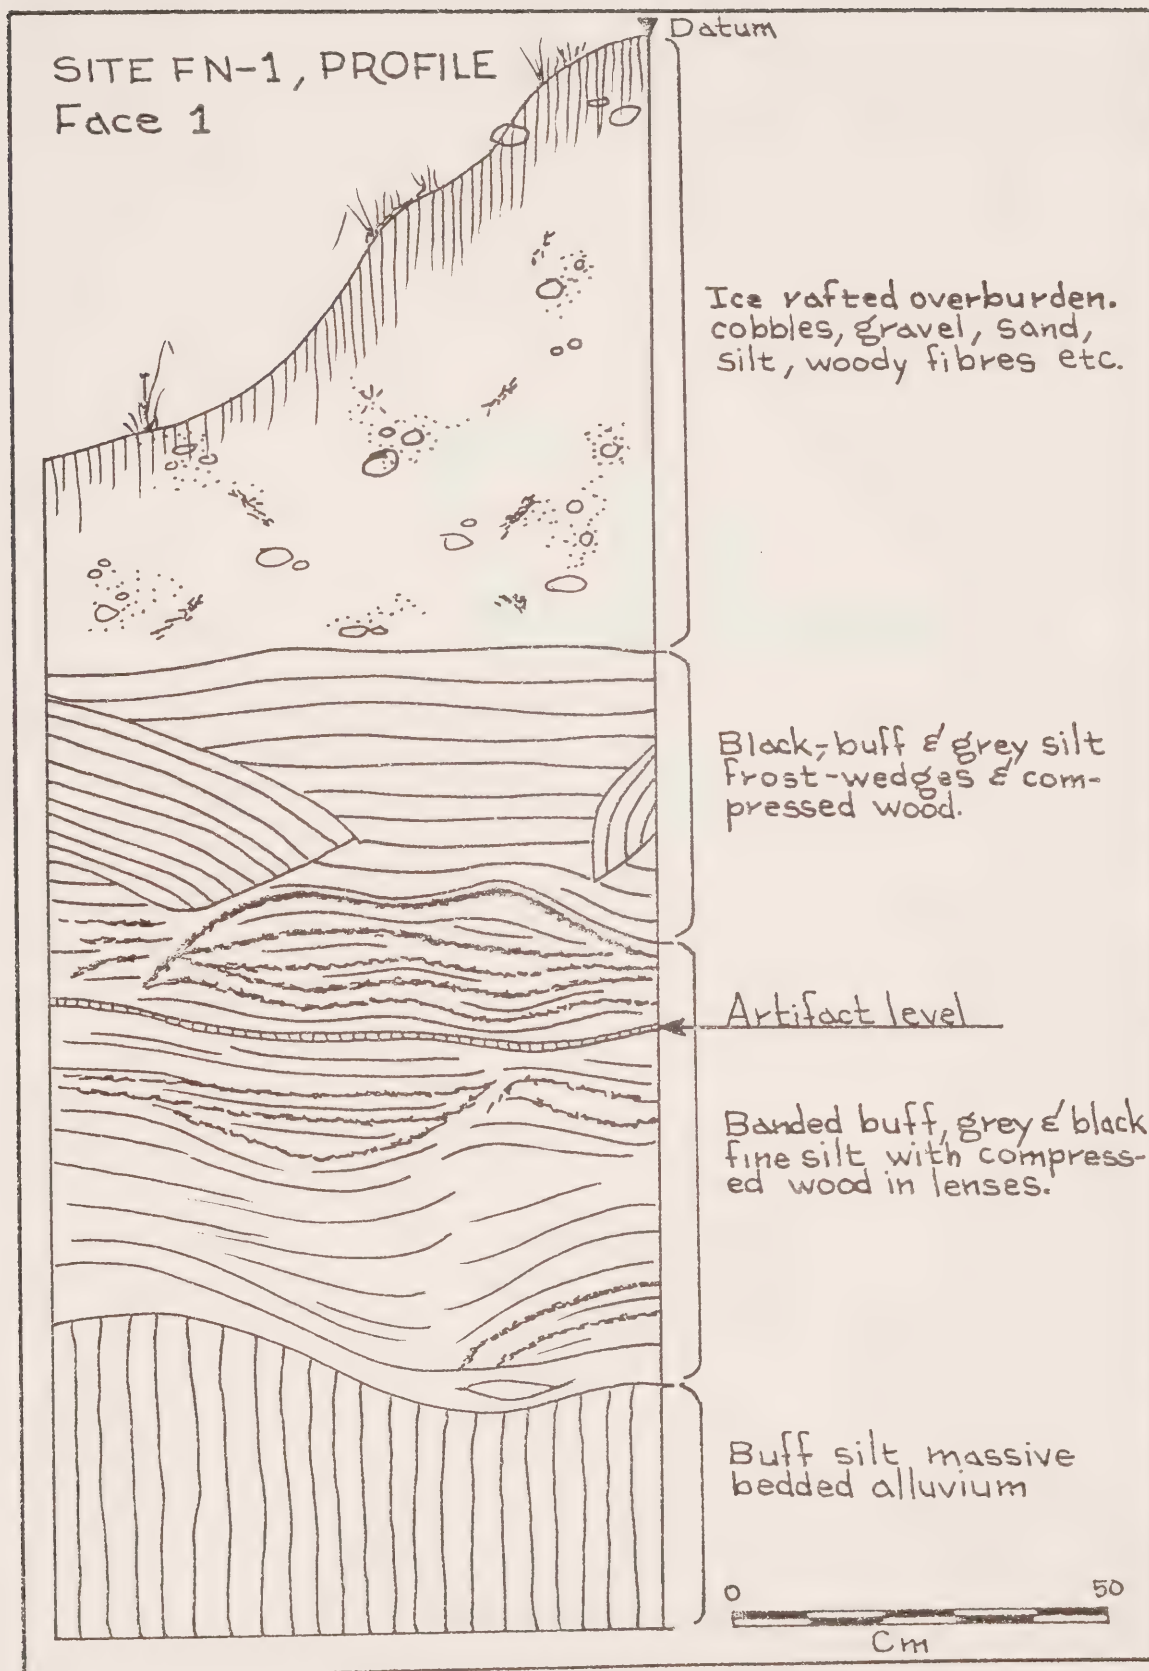 Datum
SITE FN-1, PROFILE
Face 1
Ice rafted overburden.
cobbles, gravel, sand,
silt, woody fibres etc.
Black, buff & grey silt
frost-wedges & com-
pressed wood.
Artifact level
Banded buff, grey & black
fine silt with compress-
ed wood in lenses.
Buff silt massive
bedded alluvium
0 50
Cm